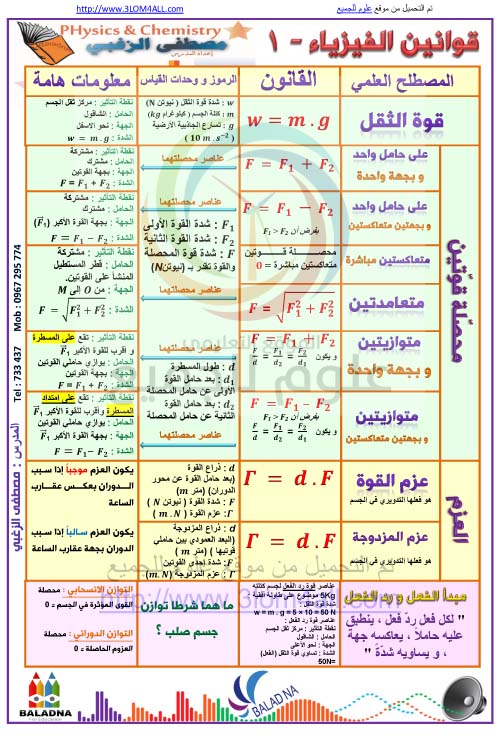 http://www.3LOM4ALL.com
تم التحميل من موقع علوم للجميع
PHysics & Chemistry
مصطفى الزغبي
قوانين الفيزياء - ١
المصطلح العلمي
القانون
الرموز و وحدات القياس
معلومات هامة
قوة الثقل
w = m . g
w : شدة قوة الثقل ( نيوتن N)
m : كتلة الجسم ( كيلوغرام kg)
g : تسارع الجاذبية الأرضية
( 10 m . s⁻² )
نقطة التأثير : مركز ثقل الجسم
الحامل : الشاقول
الجهة : نحو الاسفل
الشدة : w = m . g
محصلة قوتين
على حامل واحد
و بجهة واحدة
F = F₁ + F₂
عناصر محصلتهما
نقطة التأثير : مشتركة
الحامل : مشترك
الجهة : بجهة القوتين
الشدة : F = F₁ + F₂
على حامل واحد
و بجهتين متعاكستين
F = F₁ − F₂
بفرض أن F₁ > F₂
عناصر محصلتهما
نقطة التأثير : مشتركة
الحامل : مشترك
الجهة : بجهة القوة الأكبر (F⃗₁)
الشدة : F = F₁ − F₂
F₁ : شدة القوة الأولى
F₂ : شدة القوة الثانية
F : شدة قوة المحصلة
والقوة تقدر بـ (نيوتنN)
متعاكستين مباشرة
محصلة قوتين
متعاكستين مباشرة = 0
متعامدتين
F = √F₁² + F₂²
عناصر محصلتهما
نقطة التأثير : مشتركة
الحامل : قطر المستطيل
المنشأ على القوتين.
الجهة : من O إلى M
الشدة : F = √F₁² + F₂²
متوازيتين
و بجهة واحدة
F = F₁ + F₂
و يكون F/d = F₁/d₂ = F₂/d₁
عناصر محصلتهما
نقطة التأثير : تقع على المسطرة
و أقرب للقوة الأكبر F⃗₁
الحامل : يوازي حاملي القوتين
الجهة : بجهة القوتين
الشدة : F = F₁ + F₂
d : طول المسطرة
d₁ : بعد حامل القوة
الأولى عن حامل المحصلة
d₂ : بعد حامل القوة
الثانية عن حامل المحصلة
متوازيتين
و بجهتين متعاكستين
F = F₁ − F₂
بفرض أن F₁ > F₂
و يكون F/d = F₁/d₂ = F₂/d₁
عناصر محصلتهما
نقطة التأثير : تقع على امتداد
المسطرة وأقرب للقوة الأكبر F⃗₁
الحامل : يوازي حاملي القوتين
الجهة : بجهة القوة الأكبر F⃗₁
الشدة : F = F₁ − F₂
العزم
عزم القوة
هو فعلها التدويري في الجسم
Γ = d . F
d : ذراع القوة
(بعد حامل القوة عن محور
الدوران) (متر m )
Γ : عزم القوة ( m . N )
يكون العزم موجباً إذا سبب
الدوران بعكس عقارب
الساعة
عزم المزدوجة
هو فعلها التدويري في الجسم
Γ = d . F
d : ذراع المزدوجة
(البعد العمودي بين حاملي
قوتيها ) (متر m )
F : شدة إحدى القوتين
Γ : عزم المزدوجة (m.N)
يكون العزم سالباً إذا سبب
الدوران بجهة عقارب الساعة
مبدأ الفعل و رد الفعل
" لكل فعل رد فعل ، ينطبق
عليه حاملاً ، يعاكسه جهة
، و يساويه شدةً "
عناصر قوة رد الفعل لجسم كتلته
5Kg موضوع على طاولة أفقية
شدة قوة الثقل :
w = m . g = 5 × 10 = 50 N
عناصر قوة رد الفعل :
نقطة التأثير : مركز ثقل الجسم
الحامل : الشاقول
الجهة : نحو الاعلى
الشدة : تساوي قوة الثقل (الفعل)
50N=
ما هما شرطا توازن
جسم صلب ؟
التوازن الانسحابي : محصلة
القوى المؤثرة في الجسم = 0
التوازن الدوراني : محصلة
العزوم الحاصلة = 0
المدرس : مصطفى الزغبي
Tel : 733 437
Mob : 0967 295 774
تم التحميل من موقع علوم للجميع
http://www.3lom4all.com
BALADNA
BALADNA